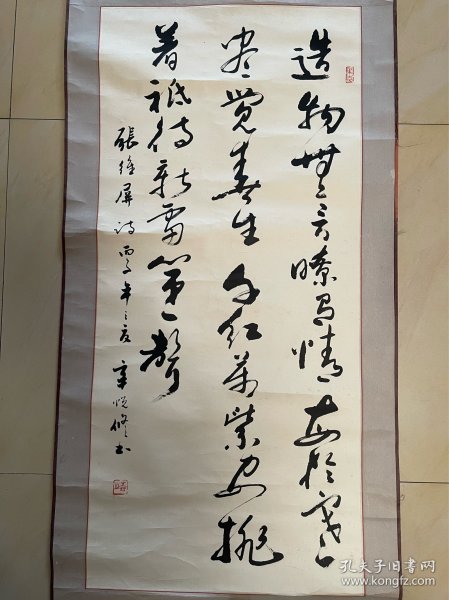 造物无言却有情每于寒
尽觉春生千红万紫安排
着祗待新雷第一声
張維屏诗丙子年之夏辛悦修书
孔夫子旧书网
www.kongfz.com